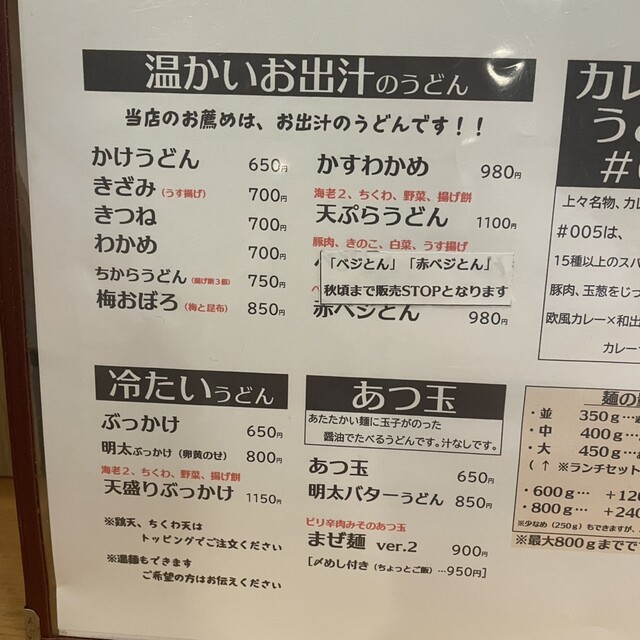 温かいお出汁のうどん
当店のお薦めは、お出汁のうどんです！！
かけうどん 650円
きざみ（うす揚げ） 700円
きつね 700円
わかめ 700円
ちからうどん（揚げ餅３個） 750円
梅おぼろ（梅と昆布） 850円
かすわかめ 980円
海老２、ちくわ、野菜、揚げ餅
天ぷらうどん 1100円
豚肉、きのこ、白菜、うす揚げ
「ベジとん」「赤ベジとん」
秋頃まで販売STOPとなります
赤ベジとん 980円
冷たいうどん
ぶっかけ 650円
明太ぶっかけ（卵黄のせ） 800円
海老２、ちくわ、野菜、揚げ餅
天盛りぶっかけ 1150円
※鶏天、ちくわ天は
トッピングでご注文ください
※温麺もできます
ご希望の方はお伝えください
あつ玉
あたたかい麺に玉子がのった
醤油でたべるうどんです。汁なしです。
あつ玉 650円
明太バターうどん 850円
ピリ辛肉みそのあつ玉
まぜ麺 ver.2 900円
［〆めし付き（ちょっとご飯）…950円］
カレ
う
#0
上々名物、カレ
#005は、
15種以上のスパ
豚肉、玉葱をじっ
欧風カレー×和出
カレー
麺の
・並 350g…
・中 400g…
・大 450g…
（↑※ランチセット
・600g… +120
・800g… +240
※少なめ（250g）もできますが、
※最大800gまでで